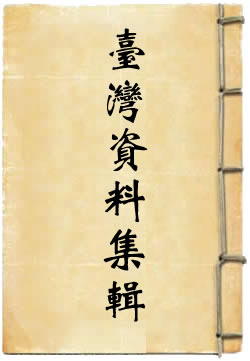 臺灣資料集輯